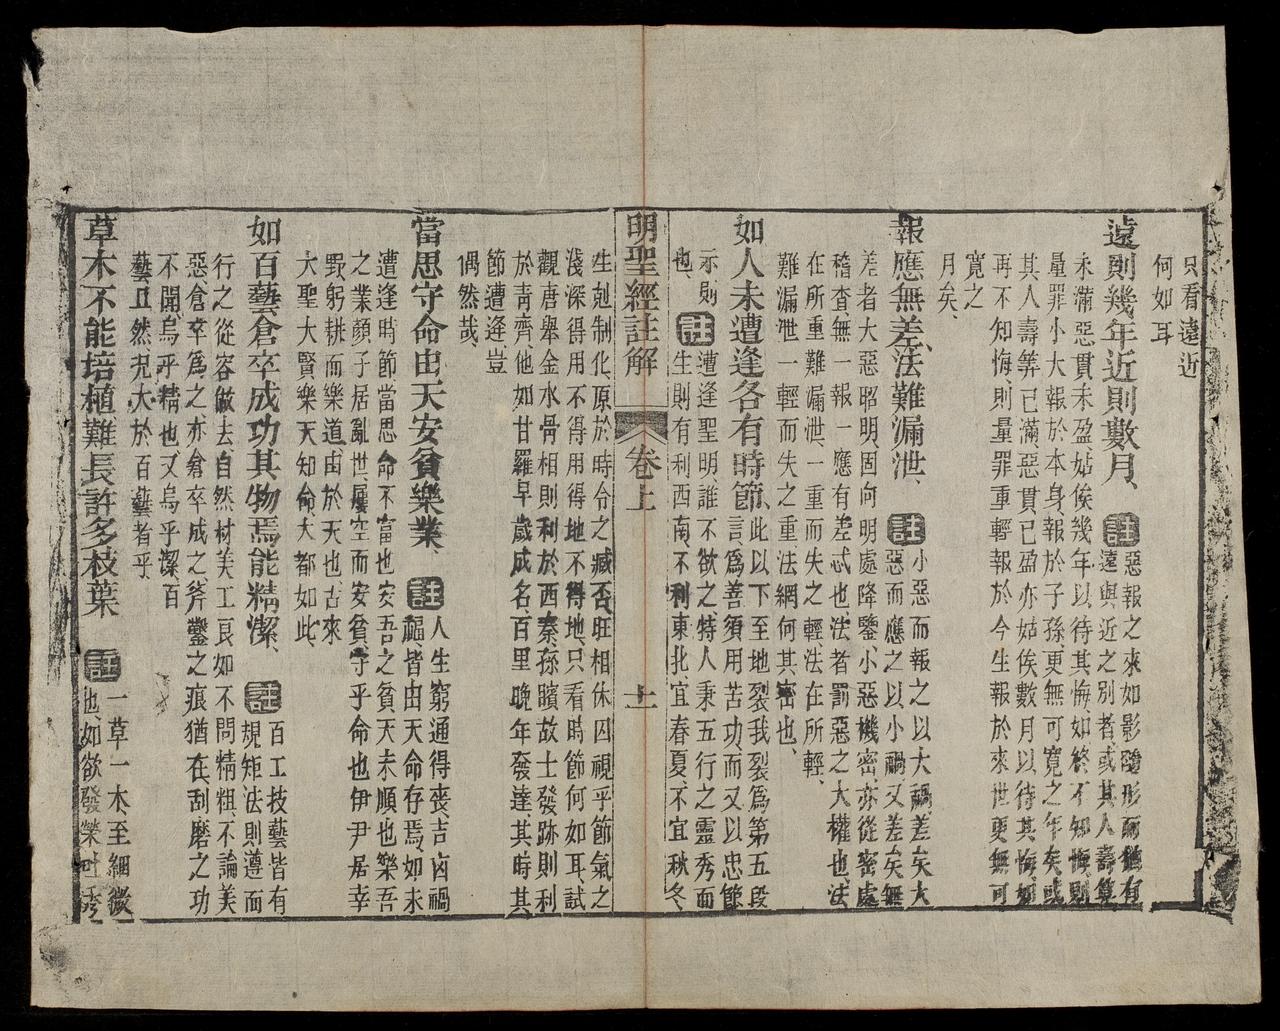 只看遠近
何如耳
遠則幾年近則數月、註惡報之來如影隨形而猶有
遠與近之別者或其人壽算
未滿惡貫未盈姑俟幾年以待其悔如終不知悔則
量罪小大報於本身報於子孫更無可寬之年矣或
其人壽筭已滿惡貫已盈亦姑俟數月以待其悔如
再不知悔則量罪重輕報於今生報於來世更無可
寬之
月矣、
報應無差法難漏泄、註小惡而報之以大禍差矣大
惡而應之以小禍又差矣無
差者大惡昭明固向明處降鑒小惡機密亦從密處
稽查無一報一應有差忒也法者罰惡之大權也法
在所重難漏泄一重而失之輕法在所輕、
難漏泄一輕而失之重法網何其密也、
如人未遭逢各有時節此以下至地裂我裂爲第五段
言爲善須用苦功而又以忠節
示則
也、註遭逢聖明誰不欲之特人秉五行之靈秀而
生則有利西南不利東北宜春夏不宜秋冬、
明聖經註解 卷上 十一
生剋制化原於時令之臧否旺相休囚視乎節氣之
淺深得用不得用得地不得地只看時節何如耳試
觀唐舉金水骨相則利於西秦孫臏故士發跡則利
於靑齊他如甘羅早歲成名百里晚年發達其時其
節遭逢豈
偶然哉
當思守命由天安貧樂業、註人生窮通得喪吉凶禍
福皆由天命存焉如未
遭逢時節當思命不富也安吾之貧天未順也樂吾
之業顏子居亂世屢空而安貧守乎命也伊尹居幸
野躬耕而樂道由於天也古來
大聖大賢樂天知命大都如此、
如百藝倉卒成功其物焉能精潔、註百工技藝皆有
規矩法則遵而
行之從容做去自然材美工良如不問精粗不論美
惡倉卒爲之亦倉卒成之斧鑿之痕猶在刮磨之功
不聞烏乎精也又烏乎潔百
藝且然況大於百藝者乎
草木不能培植難長許多枝葉 註一草一木至細微
也如欲發榮吐秀